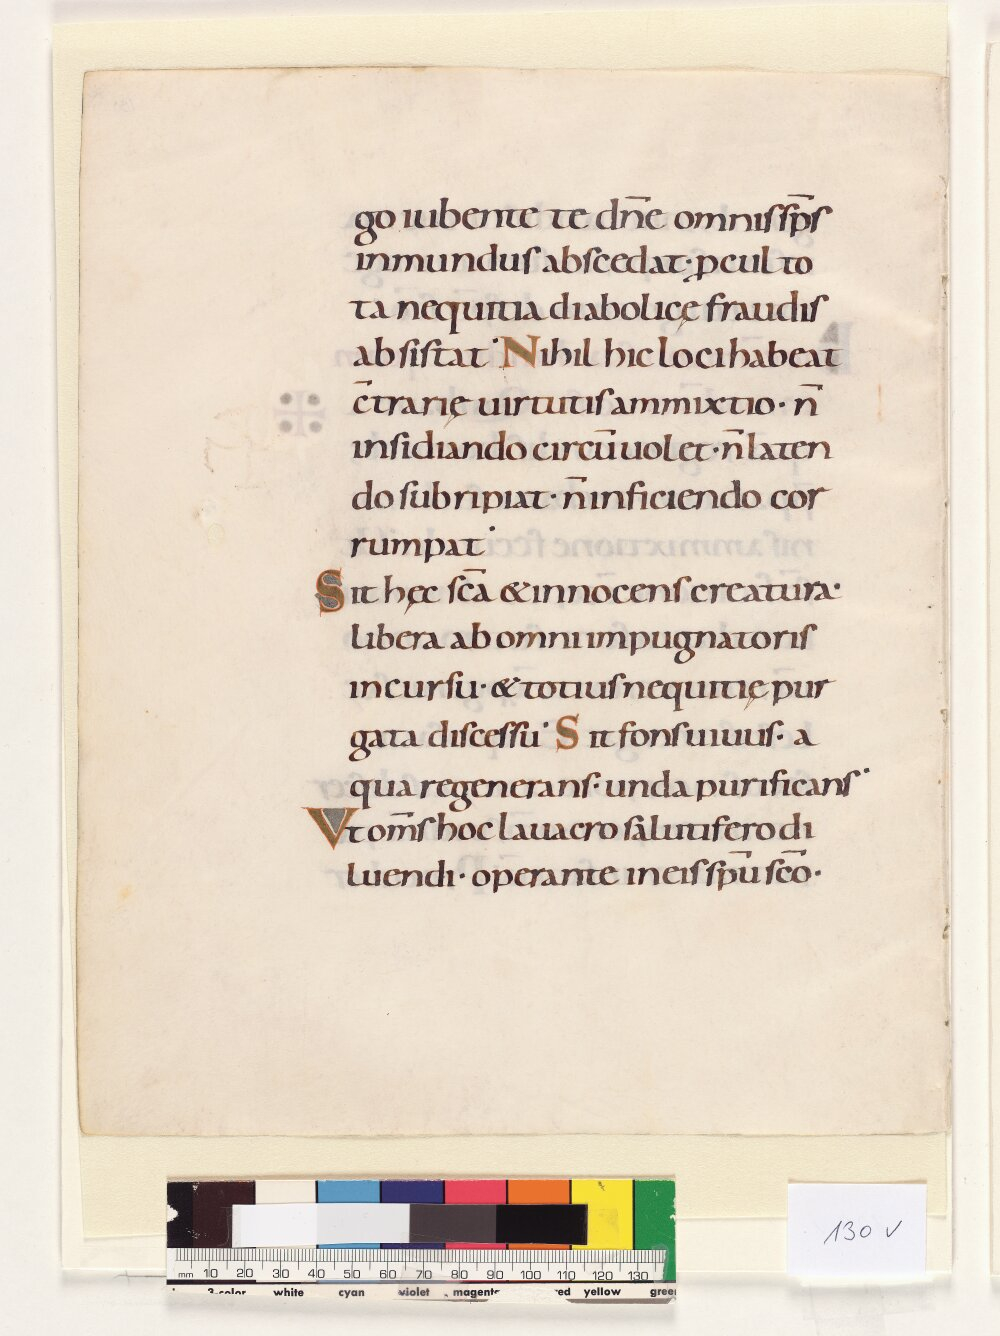 go iubente te dn̄e omnis sp̄s
inmundus abscedat· ꝑcul to
ta nequitia diabolicę fraudis
absistat· Nihil hic loci habeat
c̄trarię uirtutis ammixtio· n̄
insidiando circūuolet· n̄ laten
do subripiat· n̄ inficiendo cor
rumpat·
Sit hęc sc̄a & innocens creatura·
libera ab omni impugnatoris
incursu· & totius nequitię pur
gata discessu· Sit fons uiuus· a
qua regenerans· unda purificans·
Vt om̄s hoc lauacro salutifero di
luendi· operante in eis sp̄u sc̄o·
mm 10 20 30 40 50 60 70 80 90 100 110 120 130
3-color white cyan violet magenta red yellow green
130 v